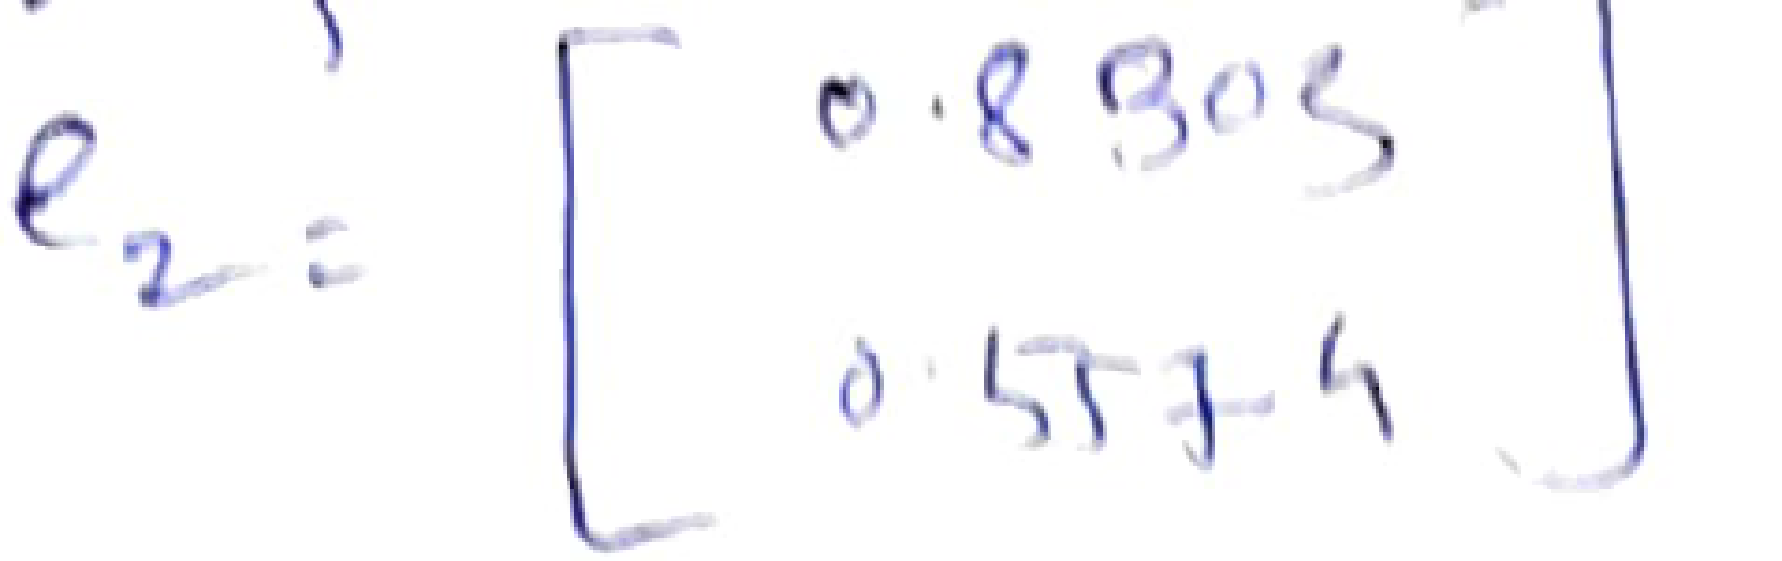 e₂ = [ 0.8303
0.5574 ]